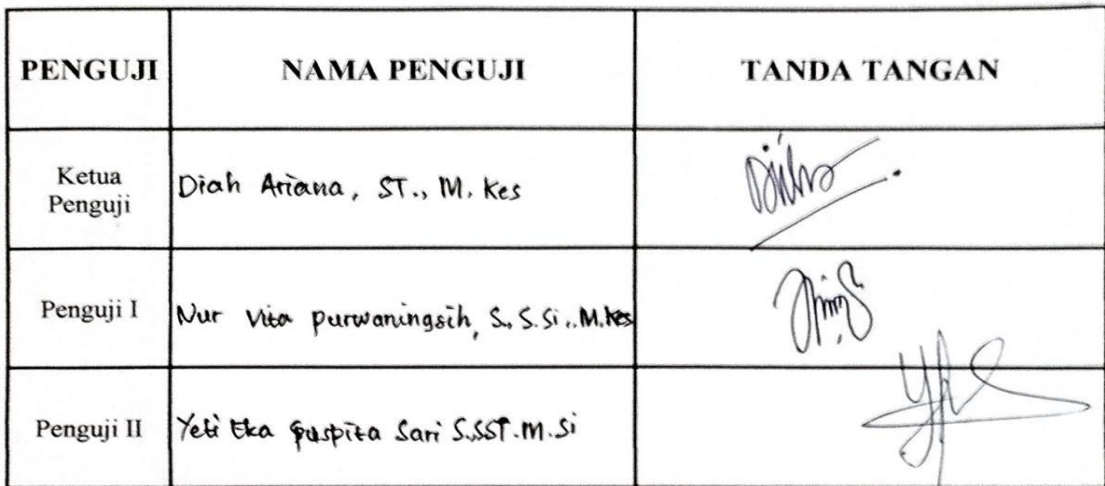 PENGUJI NAMA PENGUJI TANDA TANGAN
Ketua
Penguji
Diah Ariana, ST., M. Kes
Penguji I Nur Vita purwaningsih, S., S.Si., M.Kes
Penguji II Yeti Eka Puspita Sari S.,SST.M.Si